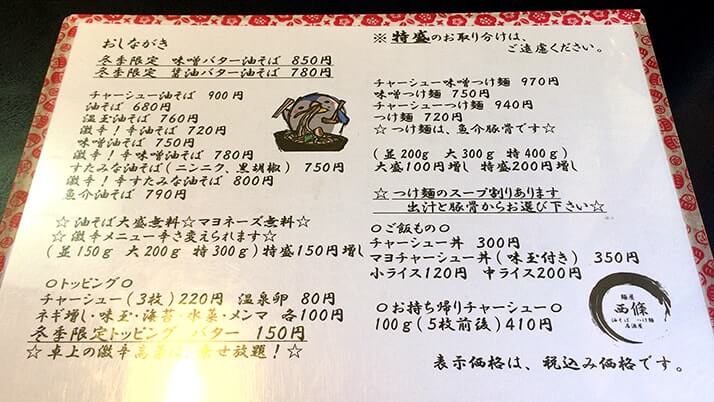 おしながき
冬季限定 味噌バター油そば 850円
冬季限定 醤油バター油そば 780円
チャーシュー油そば 900円
油そば 680円
温玉油そば 760円
激辛!辛油そば 720円
味噌油そば 750円
激辛!辛味噌油そば 780円
すたみな油そば(ニンニク、黒胡椒) 750円
激辛!辛すたみな油そば 800円
魚介油そば 790円
☆油そば大盛無料☆マヨネーズ無料☆
☆激辛メニュー辛さ変えられます☆
(並150g 大200g 特300g)特盛150円増し
○トッピング○
チャーシュー(3枚)220円 温泉卵 80円
ネギ増し・味玉・海苔・水菜・メンマ 各100円
冬季限定トッピング バター 150円
☆卓上の激辛高菜は、乗せ放題!☆
※特盛のお取り分けは、
ご遠慮ください。
チャーシュー味噌つけ麺 970円
味噌つけ麺 750円
チャーシューつけ麺 940円
つけ麺 720円
☆つけ麺は、魚介豚骨です☆
(並200g 大300g 特400g)
大盛100円増し 特盛200円増し
☆つけ麺のスープ割りあります
出汁と豚骨からお選び下さい☆
○ご飯もの○
チャーシュー丼 300円
マヨチャーシュー丼(味玉付き) 350円
小ライス120円 中ライス200円
○お持ち帰りチャーシュー○
100g(5枚前後)410円
麺屋
西條
油そば つけ麺
居酒屋
表示価格は、税込み価格です。